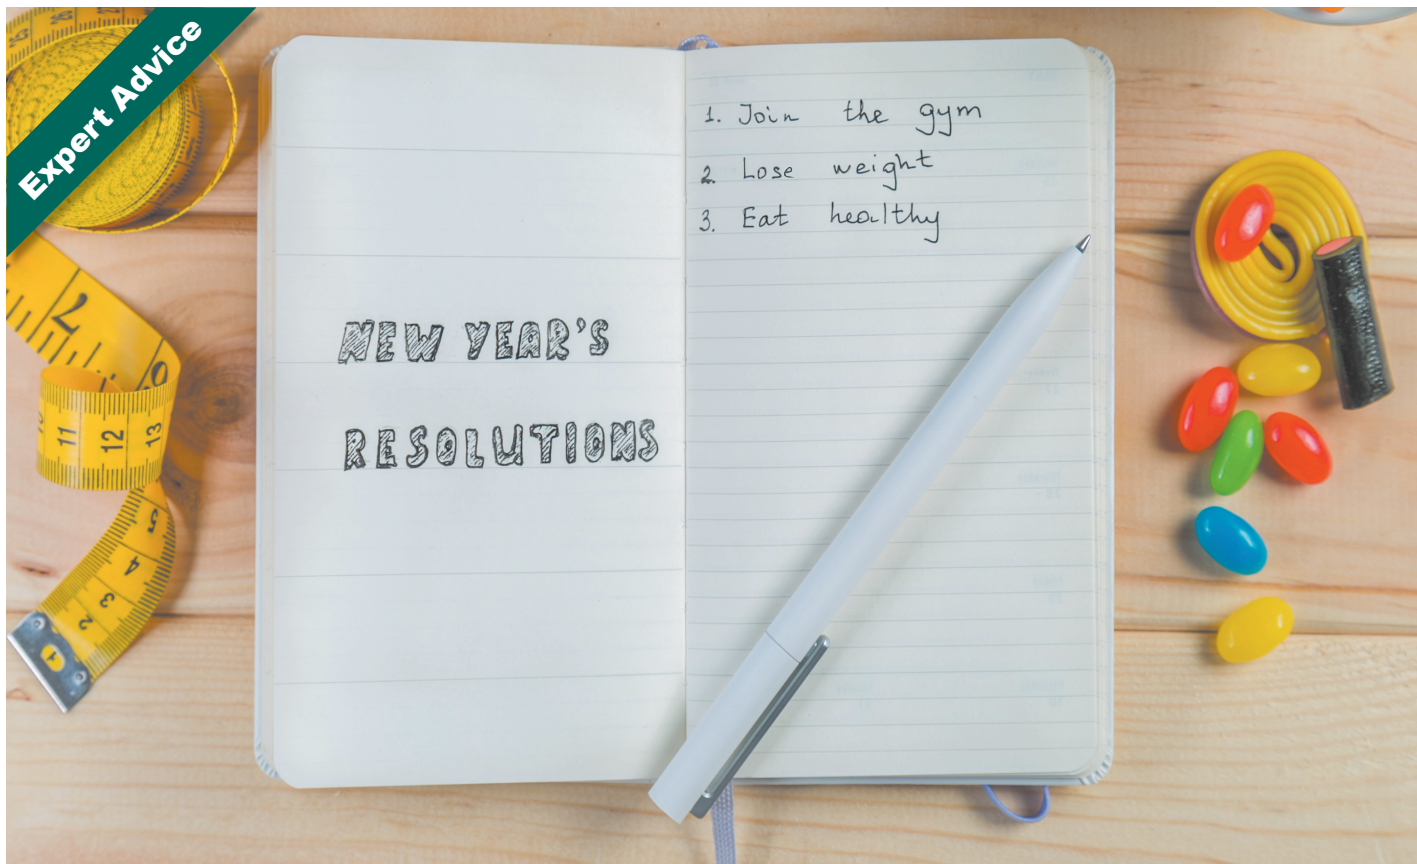 Expert Advice
NEW YEAR'S
RESOLUTIONS
1. Join the gym
2. Lose weight
3. Eat healthy
11 12 13
5
4
3
2
1